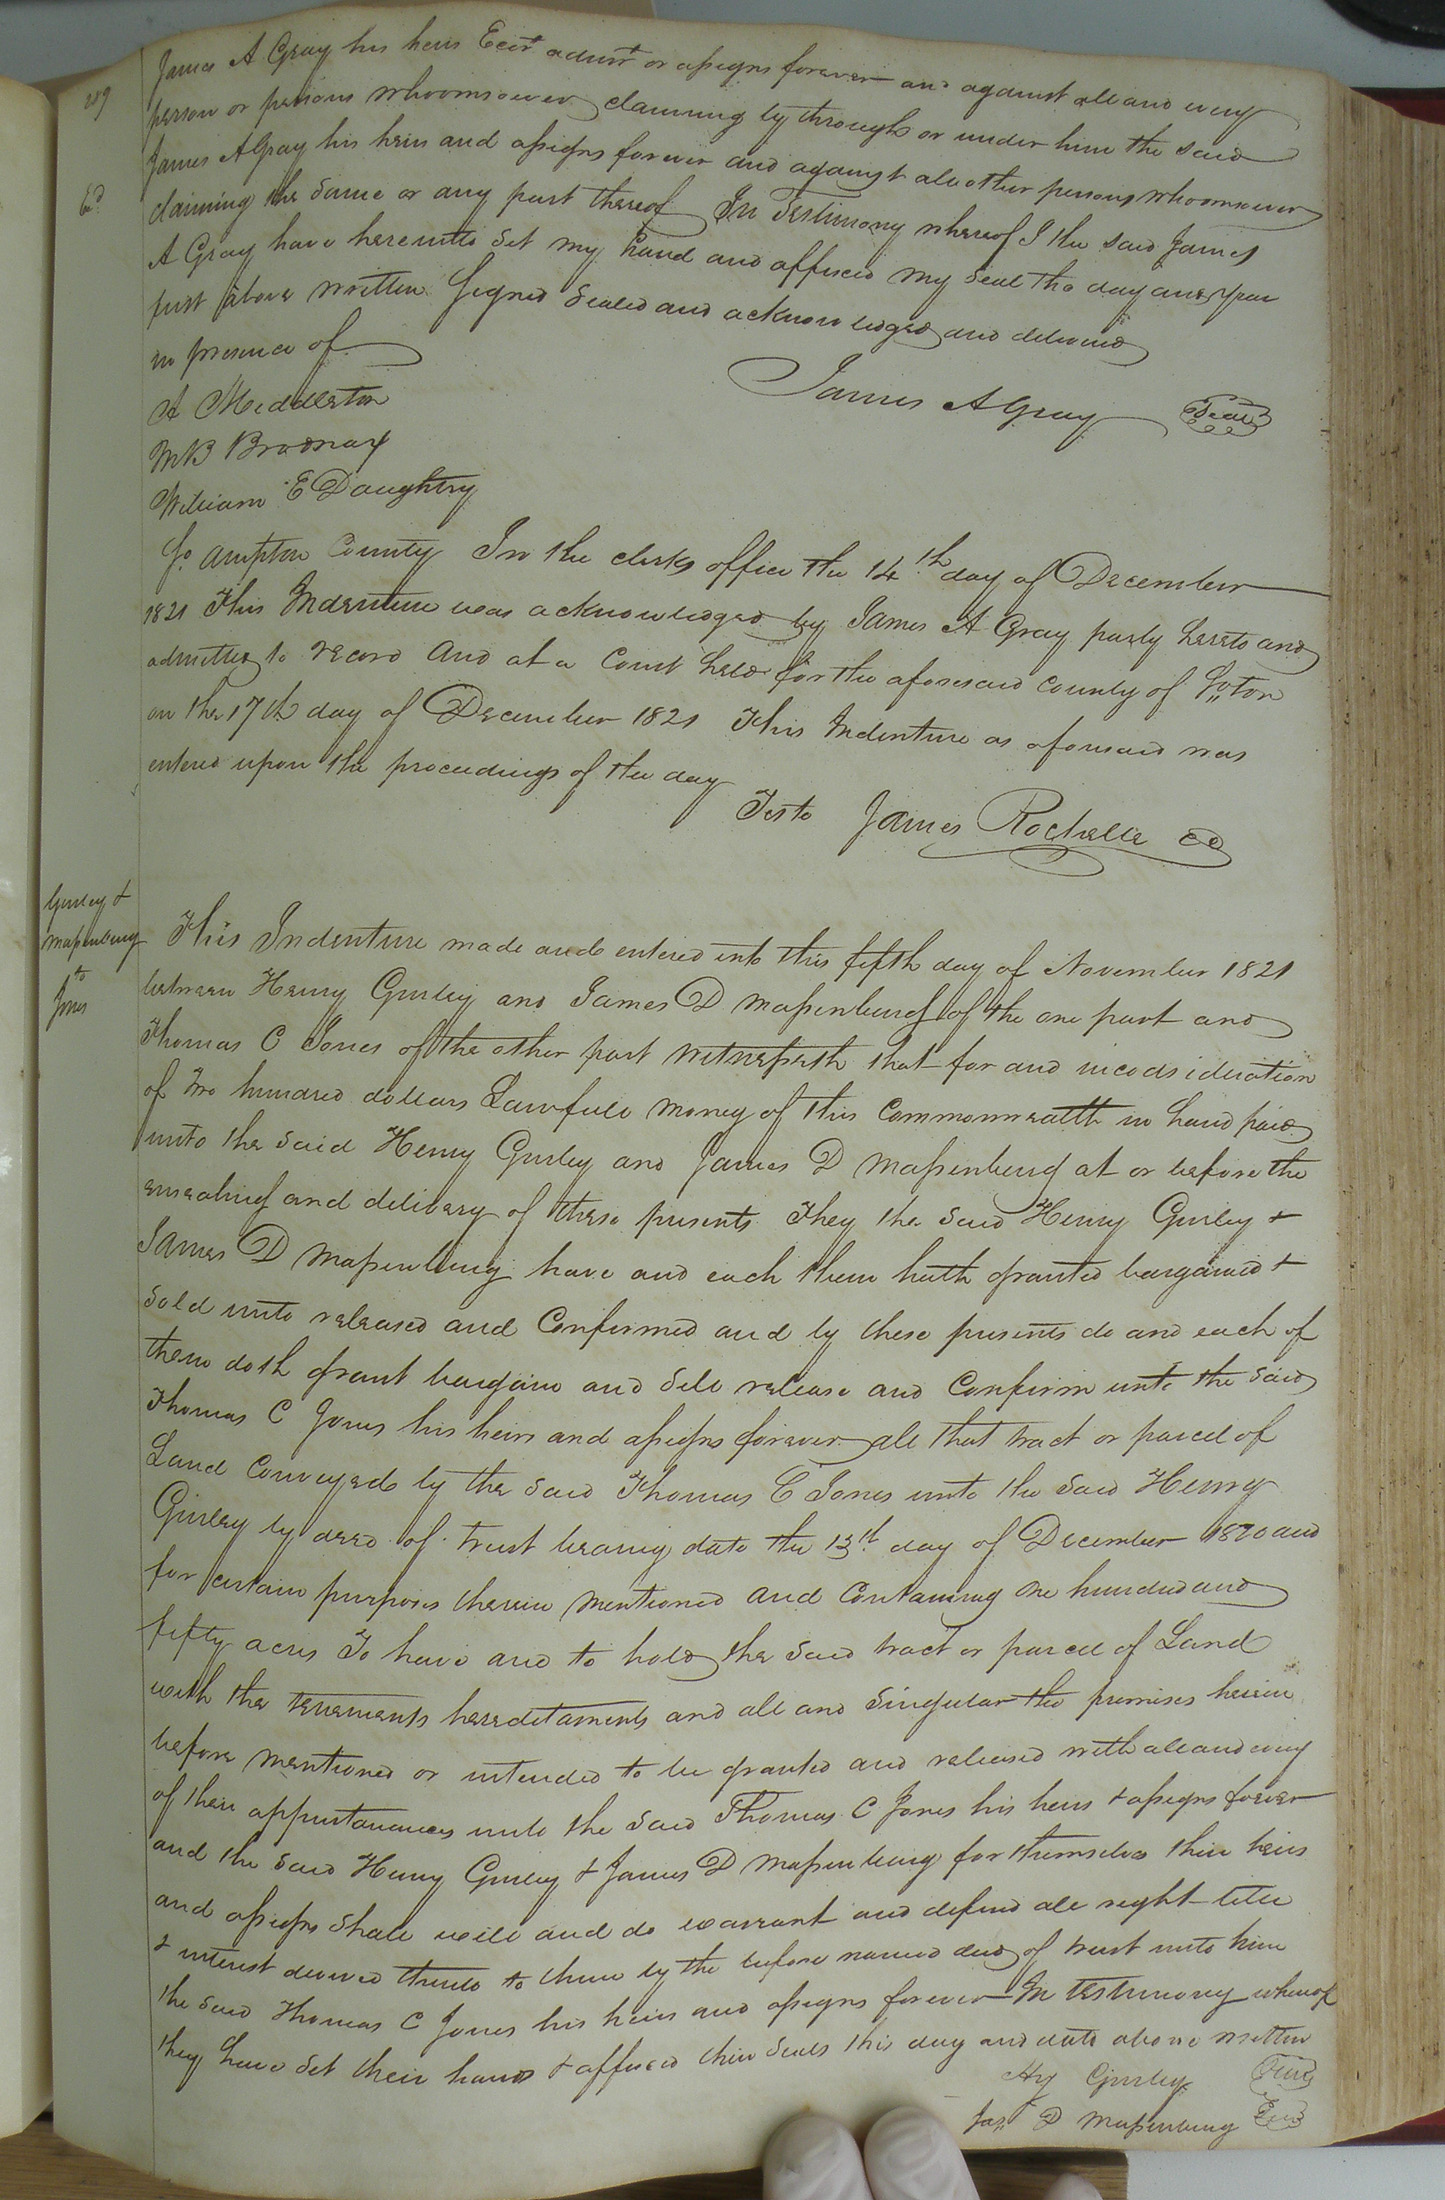 James A Gray his heirs Exrs admrs or assigns forever and against all and every
person or persons whoomsoever claiming by through or under him the said
James A Gray his heirs and assigns forever and against all other persons whoomsoever
claiming the same or any part thereof In Testimony whereof I the said James
A Gray have hereunto Set my hand and affixed my Seal the day and year
first above written Signed Sealed and acknowledged and delivered
in presence of
A Middleton
James A Gray Seal
WB Brodnax
William E Daughtry
So ampton County In the clerks office the 14th day of December
1821 This Indenture was acknowledged by James A Gray party hereto and
admitted to record And at a Court held for the aforesaid county of So ton
on the 17th day of December 1821 This Indenture as aforesaid was
entered upon the proceedings of the day
Teste James Rochelle CC
Gurley &
Massenburg
to
Jones
This Indenture made and entered into this fifth day of November 1821
between Henry Gurley and James D Massenburg of the one part and
Thomas C Jones of the other part Witnesseth that for and inconsideration
of two hundred dollars Lawfull money of this Commonwealth in hand paid
unto the said Henry Gurley and James D Massenburg at or before the
ensealing and delivery of these presents They the said Henry Gurley &
James D Massenburg have and each them hath granted bargained &
Sold unto released and Confirmed and by these presents do and each of
them doth grant bargain and Sell release and Confirm unto the said
Thomas C Jones his heirs and assigns forever all that tract or parcel of
Land Conveyed by the said Thomas C Jones unto the said Henry
Gurley by deed of trust bearing date the 13th day of December 1820 and
for certain purposes therein mentioned and Containing one hundred and
fifty acres To have and to hold the said tract or parcel of Land
with the tenements hereditaments and all and Singular the premises herein
before mentioned or intended to be granted and released with all and every
of their appurtanances unto the said Thomas C Jones his heirs & assigns forever
and the said Henry Gurley & James D Massenburg for themselves their heirs
and assigns Shall will and do warrant and defend all right title
& interest derived thereto to them by the before named deed of trust unto him
the said Thomas C Jones his heirs and assigns forever In testimony whereof
they have Set their hands & affixed their Seals this day and date above written
Hy Gurley Seal
Jas D Massenburg Seal